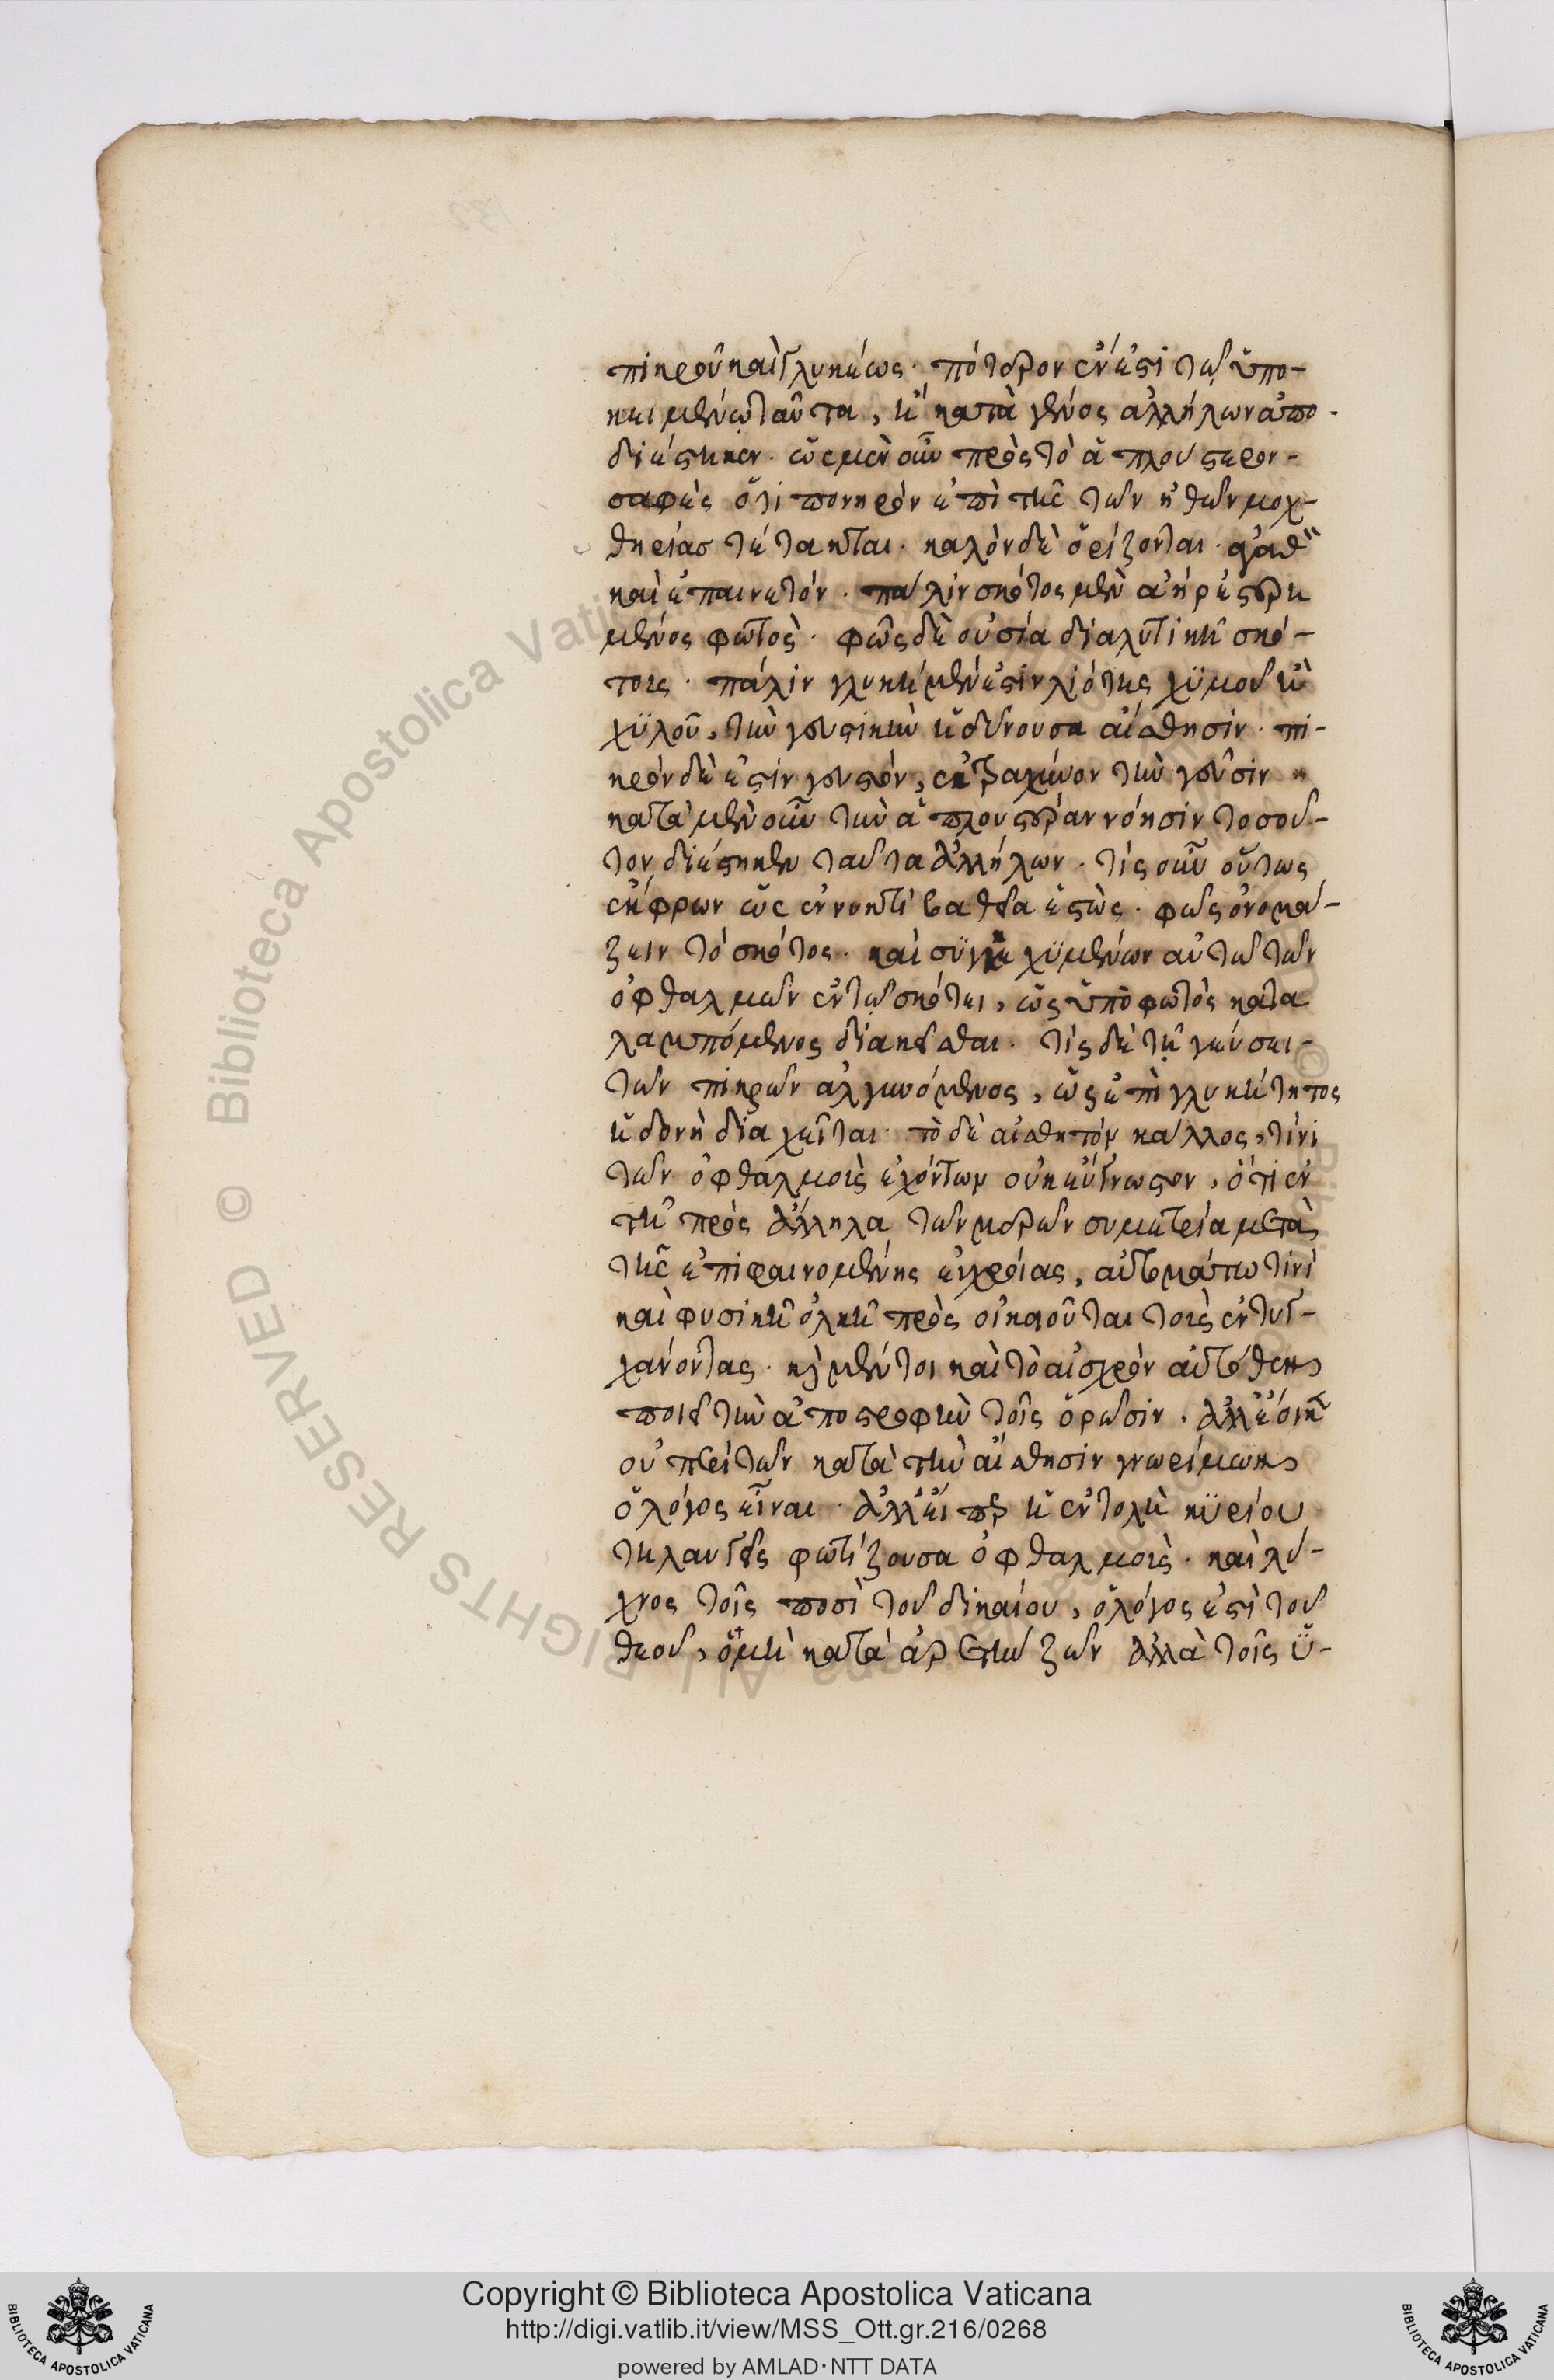 πικροῦ καὶ γλυκέως· πότερον ἕν ἐστι τῷ ὑπο-
κειμένῳ ταῦτα, ἢ κατὰ γένος ἀλλήλων ἀπο-
διέστηκεν· ὡς μὲν οὖν πρὸς τὸ ἁπλούστερον-
σαφὲς ὅτι πονηρὸν ἐπὶ τῆς τῶν ἠθῶν μοχ-
θηρίας τέτακται· καλὸν δὲ ὁρίζονται·
καὶ ἐπαινετόν· πάλιν σκότος μὲν ἀὴρ ἐστερη
μένος φωτὸς· φῶς δὲ οὐσία διαλυτικὴ σκό-
τους· πάλιν γλυκὺ μέν ἐστιν λιότης χϋμοῦ ἢ
χϋλοῦ, τὴν γευστικὴν ἡδύνουσα αἴσθησιν· πι-
κρὸν δὲ ἐστὶν γευστόν, ἐκτραχύνον τὴν γεῦσιν
κατὰ μὲν οὖν τὴν ἁπλουστέραν νόησιν τοσοῦ-
τον διέστηκεν ταῦτα ἀλλήλων· τίς οὖν οὕτως
ἔκφρων ὡς ἐν νυκτὶ βαθεῖα ἑστὼς· φῶς ὀνομά-
ζειν τὸ σκότος· καὶ συγκεχϋμένων αὐτῶ τῶν
ὀφθαλμῶν ἐν τῷ σκότει, ὡς ὑπὸ φωτὸς κατα
λαμπόμενος διακεῖσθαι· τίς δὲ τῇ γεύσει-
τῶν πικρῶν ἀλγυνόμενος, ὡς ἐπὶ γλυκύτητος
ἡδονῆ διαχεῖται· τὸ δὲ αἰσθητὸν κάλλος, τίνι
τῶν ὀφθαλμοὺς ἐχόντων οὐκ εὔγνωστον, ὅτι ἐν
τῆ πρὸς ἄλληλα τῶν μερῶν συμετρία μετὰ
τῆς ἐπιφαινομένης εὐχροίας, αὐτομάτω τινὶ
καὶ φυσικῆ ὁλκῆ προσοικειοῦται τοὺς ἐντυγ-
χάνοντας· καὶ μέντοι καὶ τὸ αἰσχρὸν αὐτόθεν
ποιεῖ τὴν ἀποστροφὴν τοῖς ὁρῶσιν, ἀλλ' ἔοικε
οὐ περὶ τῶν κατὰ τὴν αἴσθησιν γνωρίμων
ὁ λόγος εἶναι· ἀλλ' εἴπερ ἡ ἐντολὴ κϋρίου
τηλαυγὴς φωτίζουσα ὀφθαλμοὺς· καὶ λύ-
χνος τοῖς ποσὶ τοῦ δικαίου, ὁ λόγος ἐστὶ τοῦ
θεοῦ, ὁ μὴ κατὰ ἀρετὴν ζῶν ἀλλὰ τοῖς ὑ-
Copyright © Biblioteca Apostolica Vaticana
http://digi.vatlib.it/view/MSS_Ott.gr.216/0268
powered by AMLAD·NTT DATA